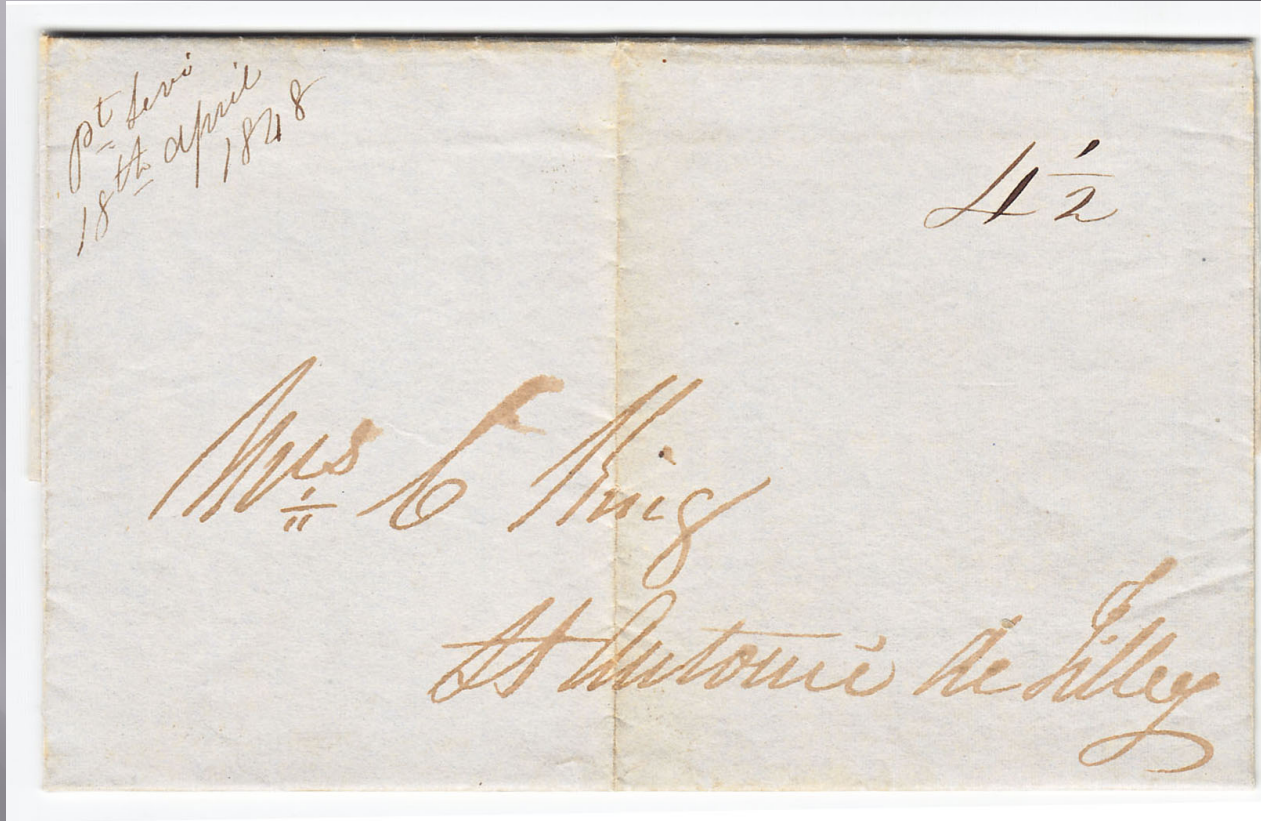 pt Levi
18th april
1848
4 1/2
Mrs C King
St Antoine de Tilley